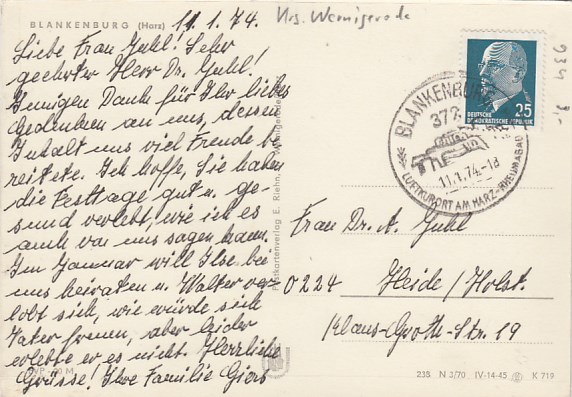 BLANKENBURG (Harz)
11.1.74.
Krs. Wernigerode
Liebe Frau Juhl! Sehr
geehrter Herr Dr. Juhl!
Innigen Dank für Ihr liebes
Gedenken an uns, dessen
Inhalt uns viel Freude be
reitete. Ich hoffe, Sie haben
die Festtage gut u. ge-
sund verlebt, wie ich es
auch von uns sagen kann.
Im Januar will Ilse bei
uns heiraten u. Walter ver-
lobt sich, wie würde sich
Vater freuen, aber leider
erlebte er es nicht. Herzliche
Grüsse! Ihre Familie Giers
VP-20 M
Postkartenverlag E. Riehn, Wernigerode
DEUTSCHE
DEMOKRATISCHE REPUBLIK
25
BLANKENBURG
372
11.1.74.-18
LUFTKURORT AM HARZ-RHEUMABAD
934 3,-
Frau Dr. A. Juhl
0224 Heide/Holst.
Klaus-Groth-Str. 19
238 N 3/70 IV-14-45 K 719